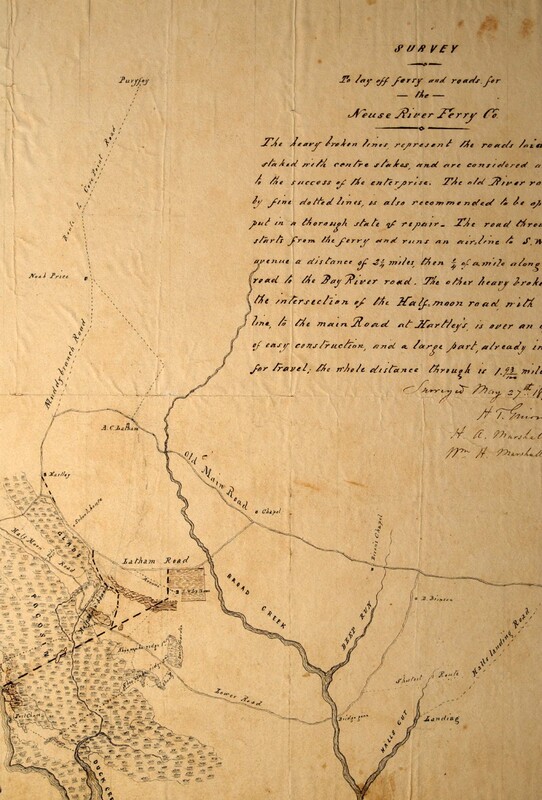 SURVEY
To lay off ferry and roads for
the
Neuse River Ferry Co.
The heavy broken lines represent the roads
staked with centre stakes, and are considered
to the success of the enterprise. The old River
by fine dotted lines, is also recommended to be
put in a thorough state of repair. The road
starts from the ferry and runs an airline to S. W.
avenue a distance of 2¼ miles, then ¼ of a mile along
road to the Bay River road. The other heavy
the intersection of the Half moon road with
line, to the main Road at Hartley's, is over an
of easy construction, and a large part, already
for travel; the whole distance through is
Surveyed May 27th
H. A. Marshall
Wm H. Marshall
Road
Noah Price
Muddybranch Road
A. C. Latham
Hartley
Old Main Road
Chapel
Schoolhouse
Half Moon Road
Latham Road
POCOSIN
BROAD CREEK
DEEP RUN
Chapel
Lower Road
Bridge gone
Shortest Route
Landing
HALLS CUT
Halls landing Road
DUCK